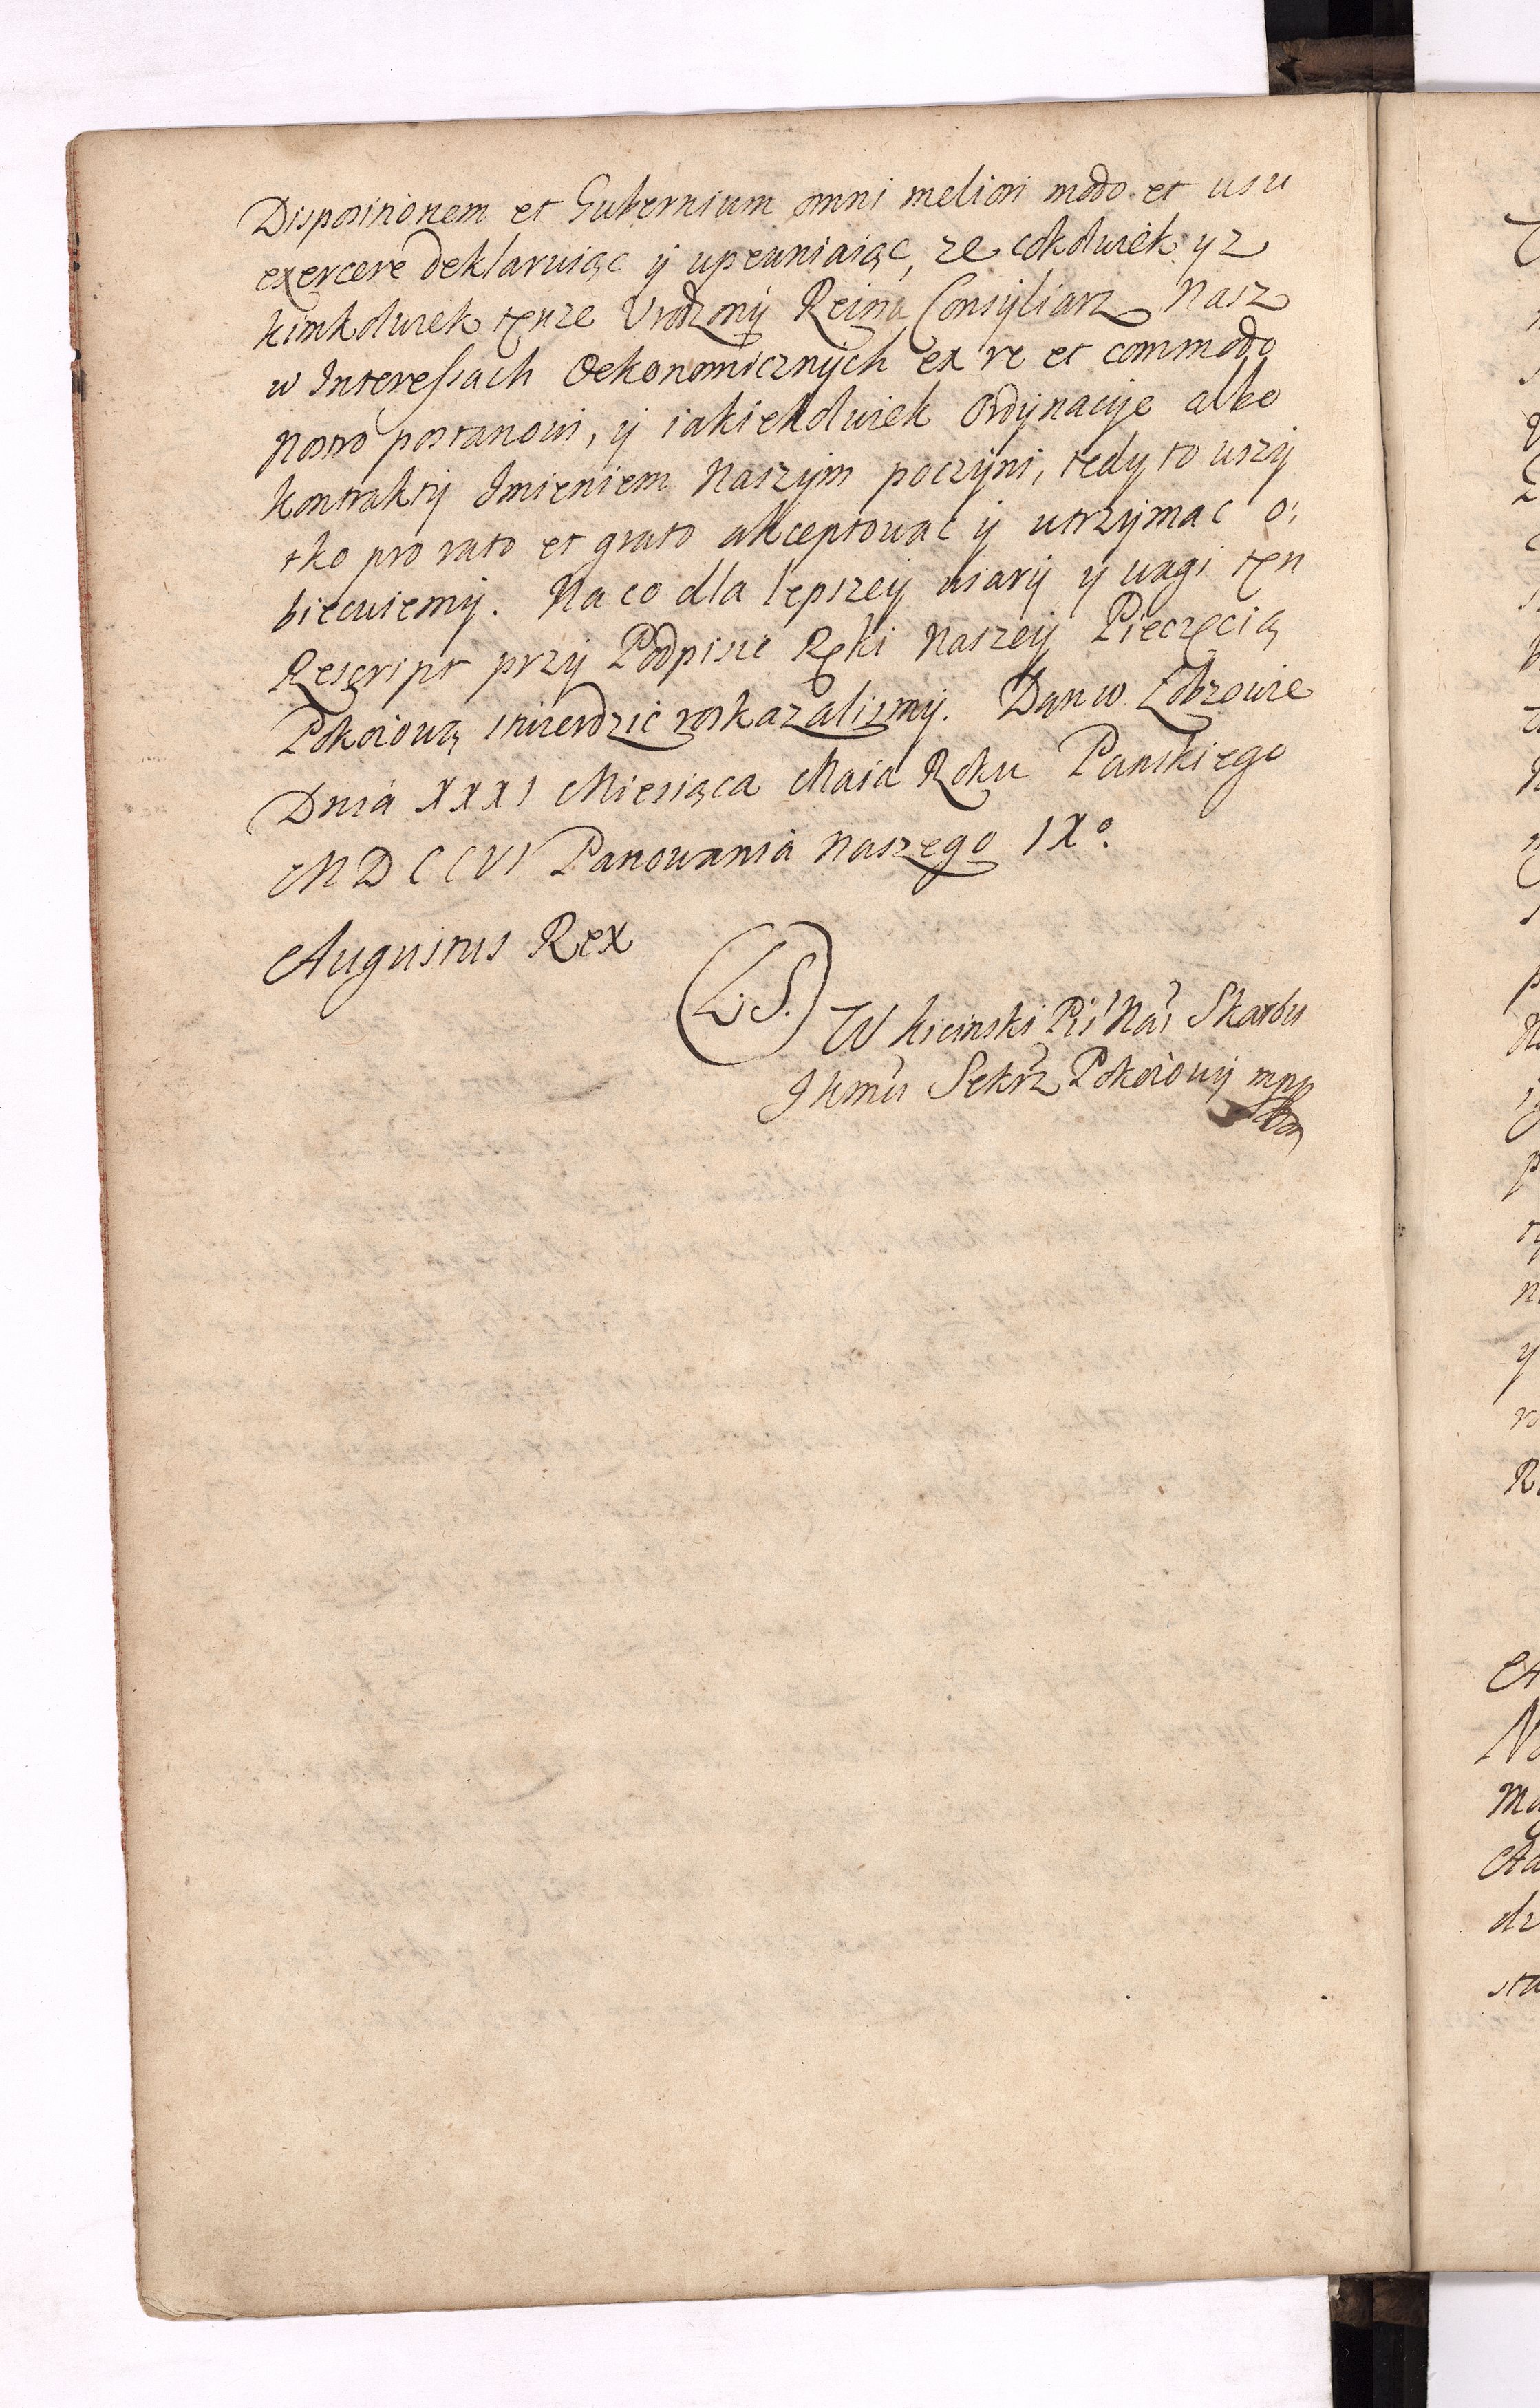 Dispositionem et Gubernium omni meliori modo et usu
exercere deklaruiąc ÿ upewniaiąc, ze cokolwiek y z
kimkolwiek tenze Vrodzonÿ Reina Consÿliarz Nasz
w Interessach Oekonomicznÿch ex re et commodo
nostro postanowi, ÿ iakiekolwiek Ordÿnacÿe albo
kontraktÿ Imieniem Naszÿm poczÿni, tedy to wszÿ
tko pro rato et grato akceptowac ÿ utrzÿmac o:
biecuiemÿ. Na co dla lepszeÿ wiarÿ y wagi ten
Rescript przÿ Podpisie Ręki Naszeÿ Pieczęcią
Pokoiową stwierdzic roskazalismÿ. Dan w
Dnia XXXI Miesiąca Maia Roku Panskiego
MDCCVI Panowania Naszego IXº.
Augustus Rex
(L.S.)
W Kicinski Pis Nar Skarbu
JKmsci Sekrz Pokoiowÿ mpp